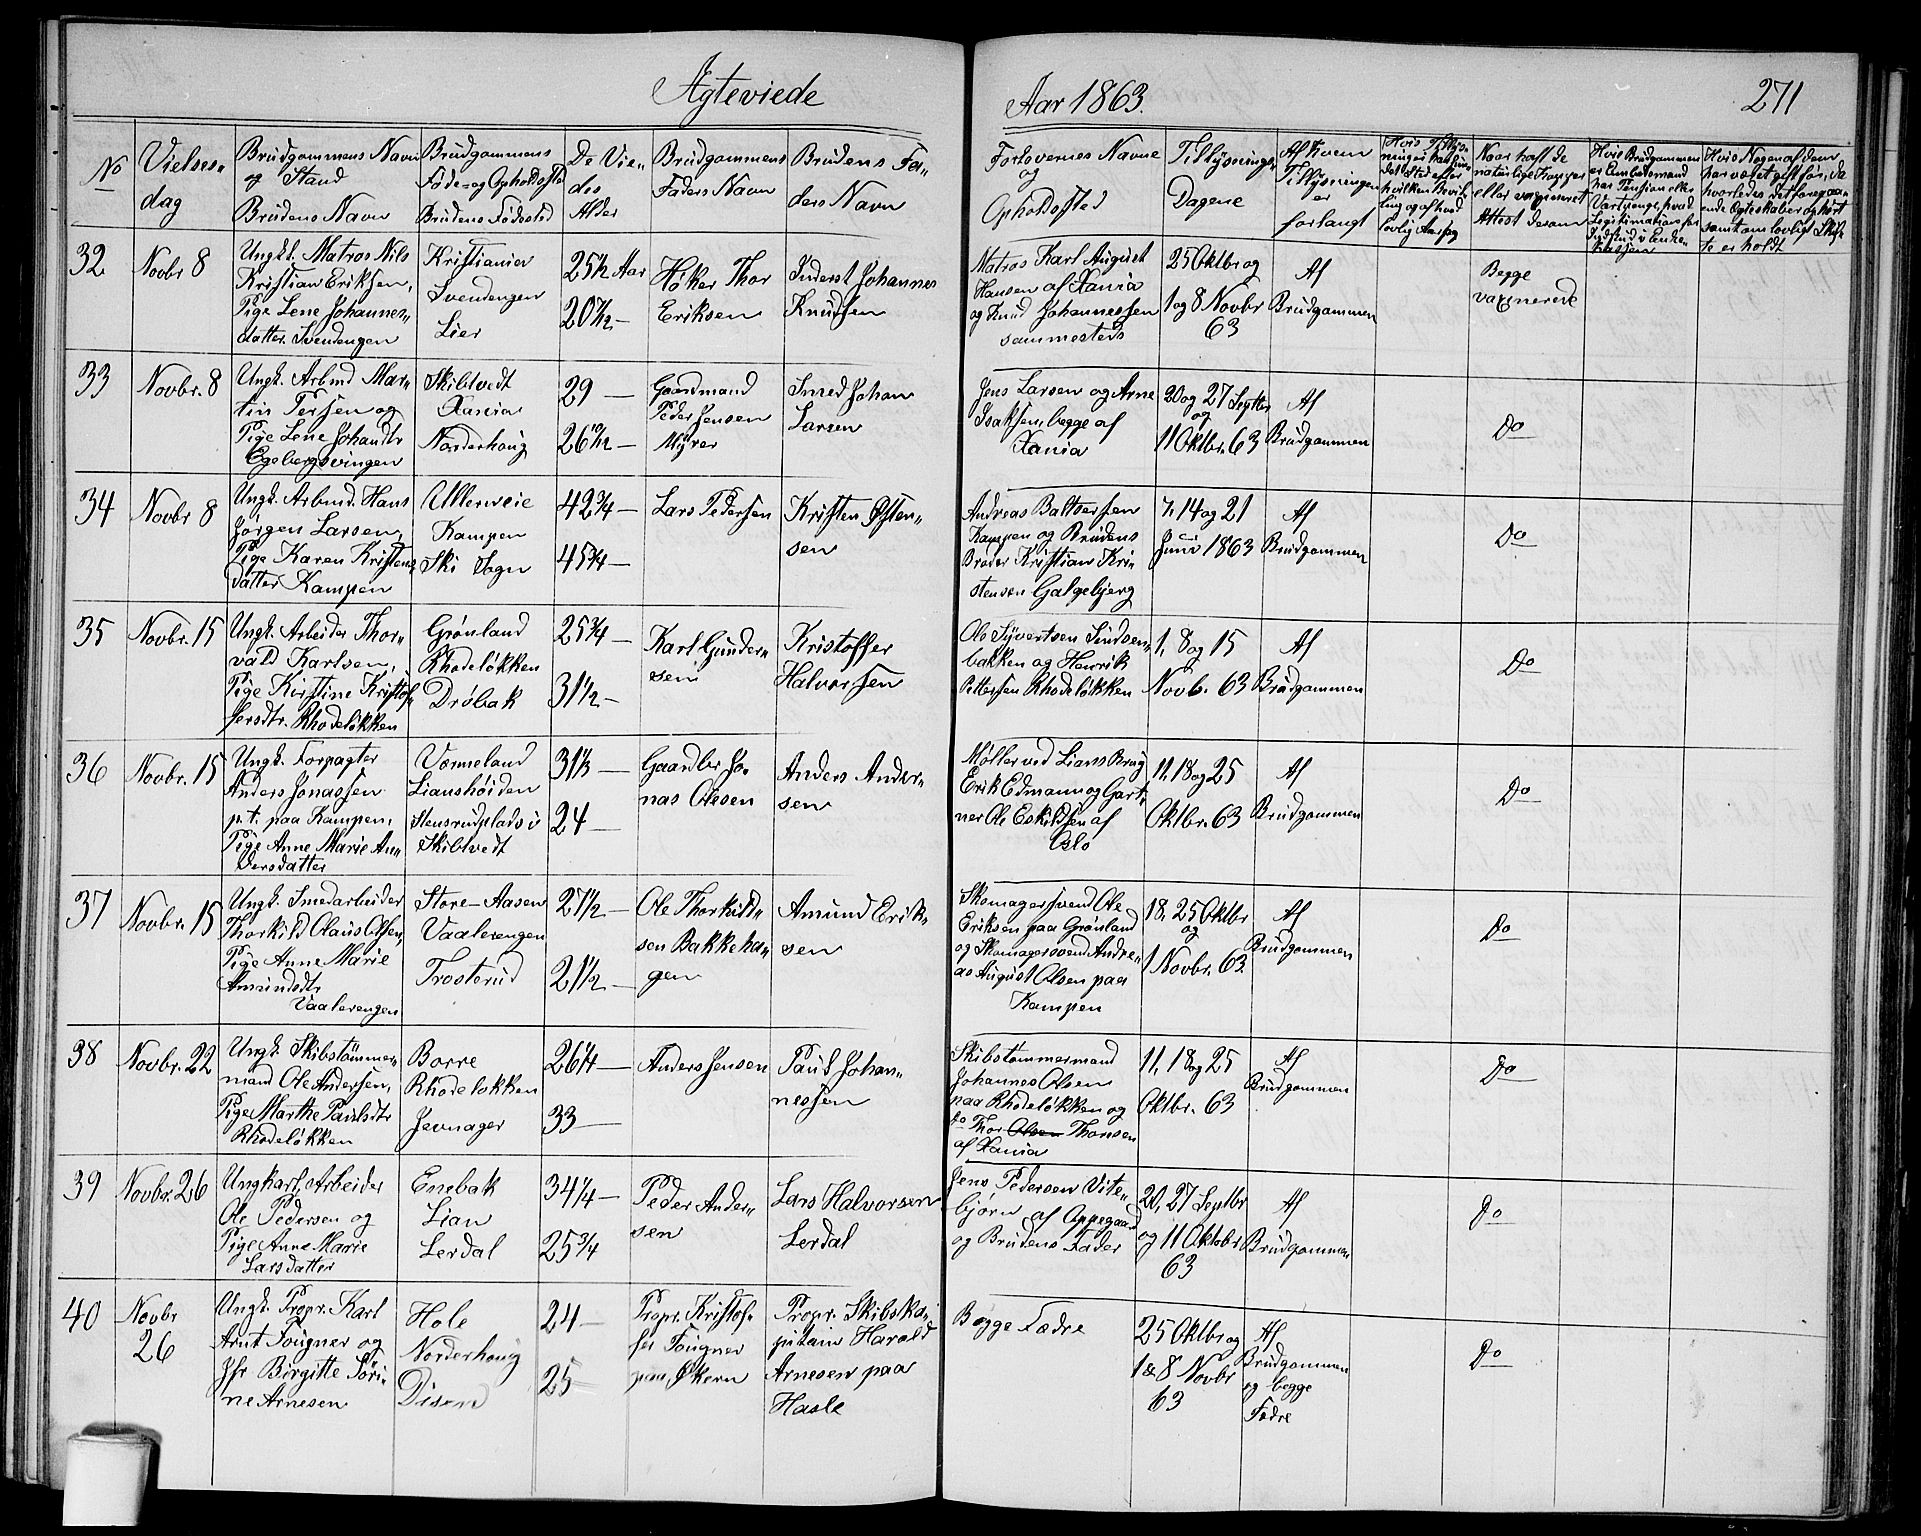 Ægteviede
Aar 1863.
271
No
Vielses-
dag
Brudgommens Navn
og Stand
Brudens Navn
Brudgommens
Føde- og Opholdssted
Brudens Fødested
De Vie-
des
Alder
Brudgommens
Faders Navn
Brudens Fa-
ders Navn
Forlovernes Navne
og
Opholdssted
Tillysnings-
Dagene
Af hvem
Tillysningen
er
forlangt
Naar havt de
naturlige Kopper
eller vaccineret
Attest derom
32
Novbr 8
Ungk. Matros Nils
Kristian Eriksen,
Pige Lene Johannes-
datter. Svendengen
Kristiania
Svendengen
Lier
25 1/2 Aar
20 7/12 —
Høker Thor
Eriksen
Inderst Johannes
Knudsen
Matros Karl August
Hansen af Xania
og Knud Johannessen
sammesteds
25 Oktbr og
1 og 8 Novbr
63
Af
Brudgommen
Begge
vaxinerede
33
Novbr. 8
Ungk. Arbmd Mar-
tin Persen og
Pige Lene Johandtr
Egebergsvingen
Skibtvedt
Xania
Norderhoug
29 —
26 10/12 —
Gaardmand
Peder Jensen
Myrer
Smed Johan
Larsen
Jens Larsen og Arne
Isaksen, begge af
Xania
20 og 27 Septbr
og
11 Oktbr. 63
Af
Brudgommen
Do
34
Novbr 8
Ungk. Arbmd. Hans
Jørgen Larsen,
Pige Karen Kristens-
datter Kampen
Ullerveie
Kampen
Ski Sogn
42 3/4 —
45 3/4 —
Lars Pedersen
Kristen Østen-
sen
Andreas Baltsersen
Kampen og Brudens
Broder Kristian Kri-
stensen Galgebjerg
7, 14 og 21
Juni 1863
Af
Brudgommen
Do
35
Novbr. 15
Ungk. Arbeider Thor-
vald Karlsen,
Pige Kirstine Kristof-
fersdtr. Rhodeløkken
Grønland
Rhodeløkken
Drøbak
25 3/4 —
31 1/2 —
Karl Gunder-
sen
Kristoffer
Halvorsen
Ole Syvertsen Sindsen-
bakken og Henrik
Pettersen Rhodeløkken
1, 8 og 15
Novb. 63
Af
Brudgommen
Do
36
Novbr. 15
Ungk. Forpagter
Anders Jonassen
p. t. paa Kampen,
Pige Anne Marie An-
dersdatter
Vermeland
Lianshøiden
Stensrudplads i
Skibtvedt
31 1/3 —
24 —
Gaardbr Jo-
nas Olesen
Anders Ander-
sen
Møller ved Lians Brug
Erik Edmann og Gart-
ner Ole Eskildsen af
Oslo
11, 18 og 25
Oktbr. 63
Af
Brudgommen
Do
37
Novbr. 15
Ungk. Smedarbeider
Thorkild Olaus Olsen,
Pige Anne Marie
Amundsdtr
Vaalerengen
Store-Aasen
Vaalerengen
Trosterud
27 1/2 —
21 1/2 —
Ole Thorkild-
sen Bakkeha-
gen
Amund Erik-
sen
Skomagersvend Ole
Eriksen paa Grønland
og Skomagersvend Andre-
as August Olsen paa
Kampen
18, 25 Oktbr
og
1 Novbr. 63.
Af
Brudgommen
Do
38
Novbr. 22
Ungk. Skibstømmer-
mand Ole Andersen,
Pige Marthe Paulsdtr
Rhodeløkken
Borre
Rhodeløkken
Jevnager
26 1/4 —
33 —
Anders Jensen
Paul Johan-
nessen
Skibstømmermand
Johannes Olsen
paa Rhodeløkken og
do Thor Olsen Thonsen
af Xania
11, 18 og 25
Oktbr. 63
Af
Brudgommen
Do
39
Novbr. 26
Ungkarl, Arbeider
Ole Pedersen og
Pige Anne Marie
Larsdatter
Enebak
Lian
Lerdal
34 1/4 —
25 3/4
Peder Ander-
sen
Lars Halvorsen
Lerdal
Jens Pedersen Vite-
bjørn af Oppegaard
og Brudens Fader
20, 27 Septbr
og 11 Oktober
63
Af
Brudgommen
Do
40
Novbr
26
Ungk. Propr. Karl
Arnt Fougner og
Jfr Birgitte Søri-
ne Arnesen
Hole
Norderhoug
Disend
24 —
25 —
Propr. Kristof-
fer Fougner
paa Økern
Propr. Skibska-
pitain Harald
Arnesen paa
Hasle
Begge Fædre
25 Oktbr og
1 & 8 Novbr
63
Af
Brudgommen
og begge
Fædre
Do